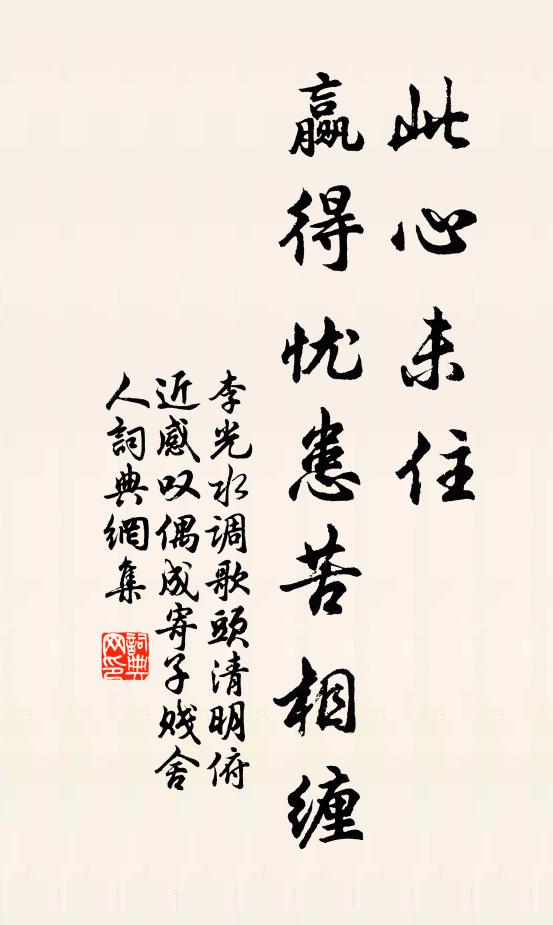 此心未住
赢得忧患苦相缠
李光水调歌頭清明俯
近感叹偶成寄子贱舍
人詞典網集
詞典
网印